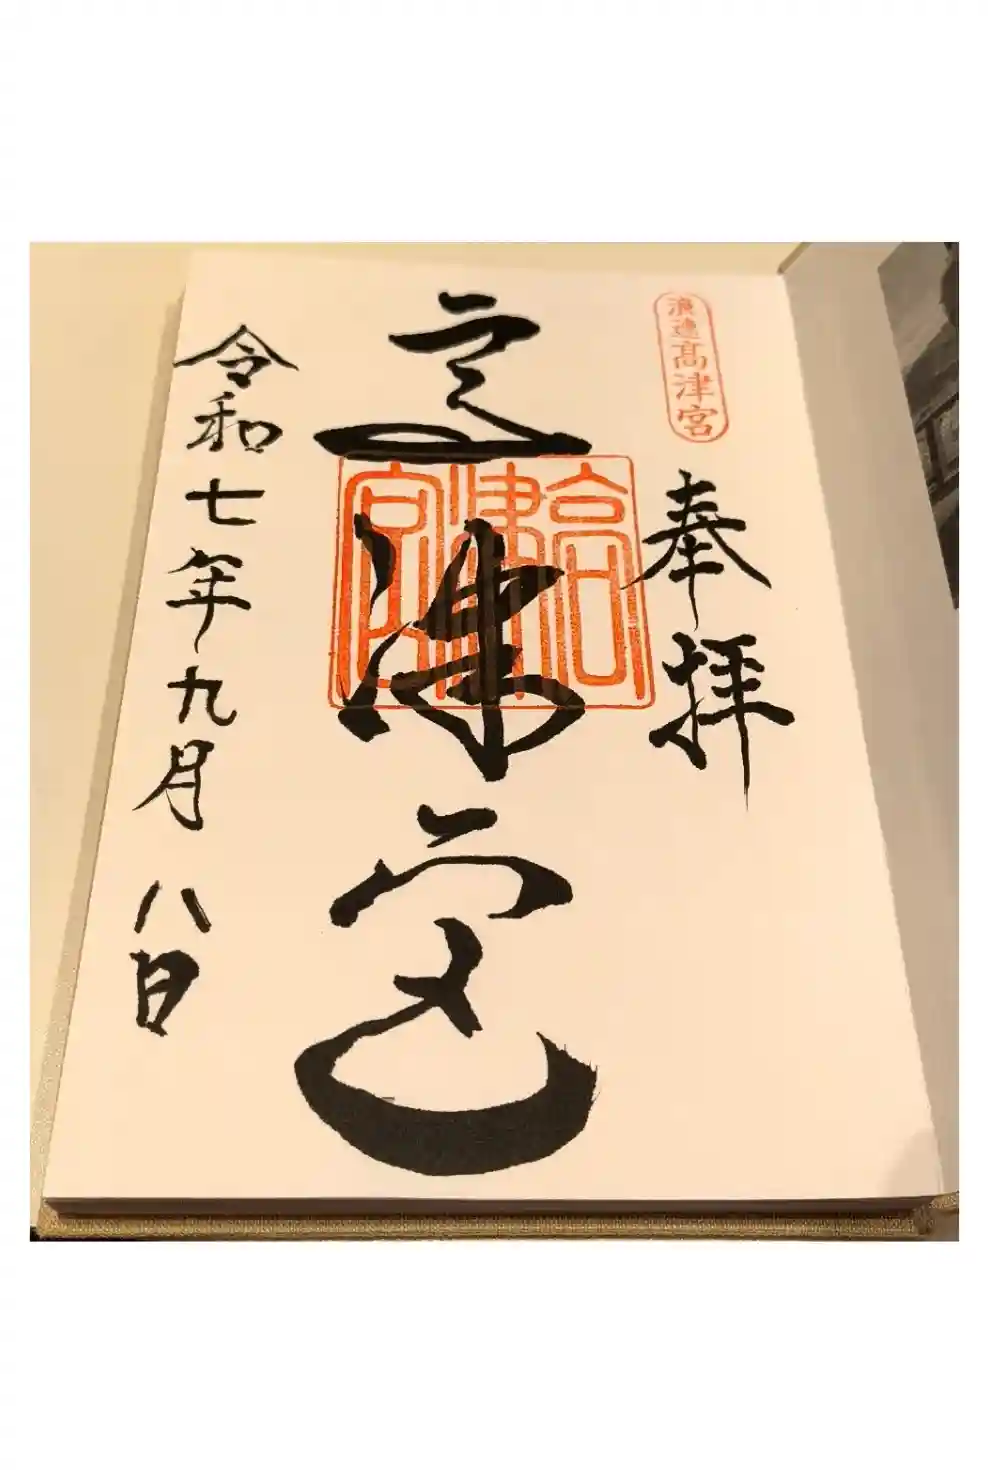 浪速高津宮
奉拝
高津宮
高津宮
令和七年九月八日